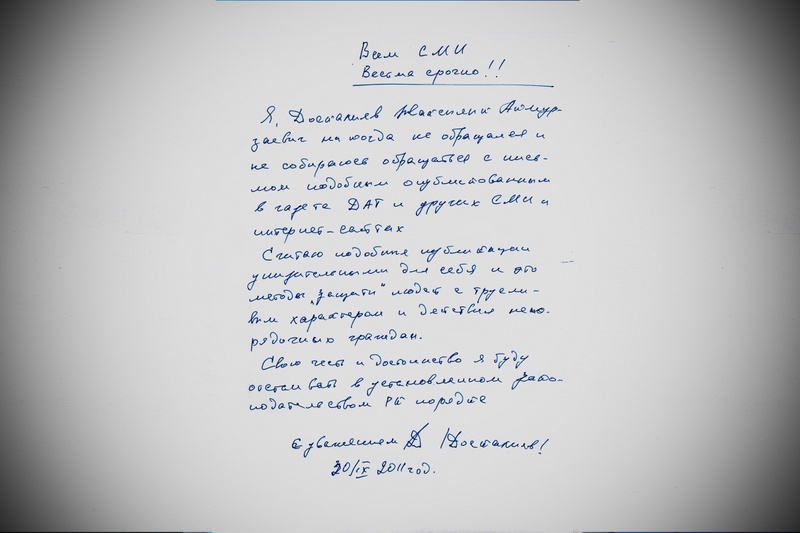 Всем СМИ
Весьма срочно!!
Я, Досталиев Жаксылык Аймур-
заевич никогда не обращался и
не собираюсь обращаться с пись-
мом подобным опубликованным
в газета ДАТ и других СМИ и
интернет-сайтах
Считаю подобные публикации
унизительными для себя и это
методы „защиты" людей с трусли-
вым характером и действия непо-
рядочных граждан.
Свою честь и достоинство я буду
отстаивать в установленном зако-
нодательством РК порядке
С уважением Досталиев!
20/IX 2011 год.